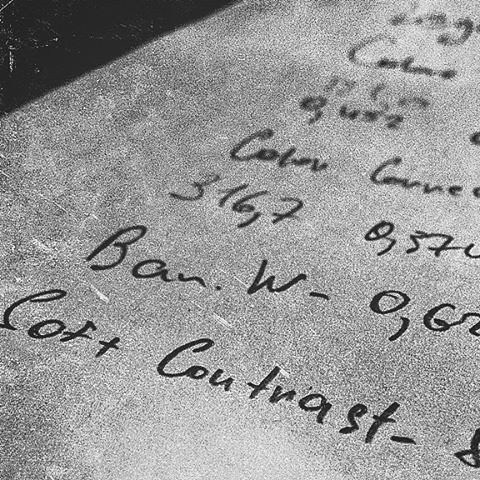 Color
0,452
Color Connec
316,7 0,570
Ban. W- 0,62
Soft Contrast- 8